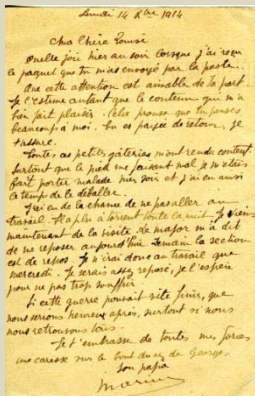 Lundi 14 Xbre 1914
Ma Chère Louise
Quelle joie hier au soir lorsque j'ai reçu
le paquet que tu m'as envoyé par la poste.
Que cette attention est aimable de ta part.
Je l'estime autant que le contenu qui m'a
bien fait plaisir. Cela prouve que tu penses
beaucoup à moi. Tu es payée de retour, je
t'assure.
Toutes ces petites gâteries m'ont rendu content
surtout que le pied me faisant mal je m'étais
fait porter malade hier soir et j'ai eu ainsi
le temps de le déballer.
J'ai eu de la chance de ne pas aller au
travail. Il a plu à torrent toute la nuit. Je viens
maintenant de la visite. Le major m'a dit
de me reposer aujourd'hui. Demain la section
est de repos. Je n'irai donc au travail que
mercredi. Je serai assez reposé, je l'espère
pour ne pas trop souffrir.
Si cette guerre pouvait vite finir, que
nous serions heureux après, surtout si nous
nous retrouvons tous.
Je t'embrasse de toutes mes forces,
une caresse sur le bout du nez de Georges
Son papa